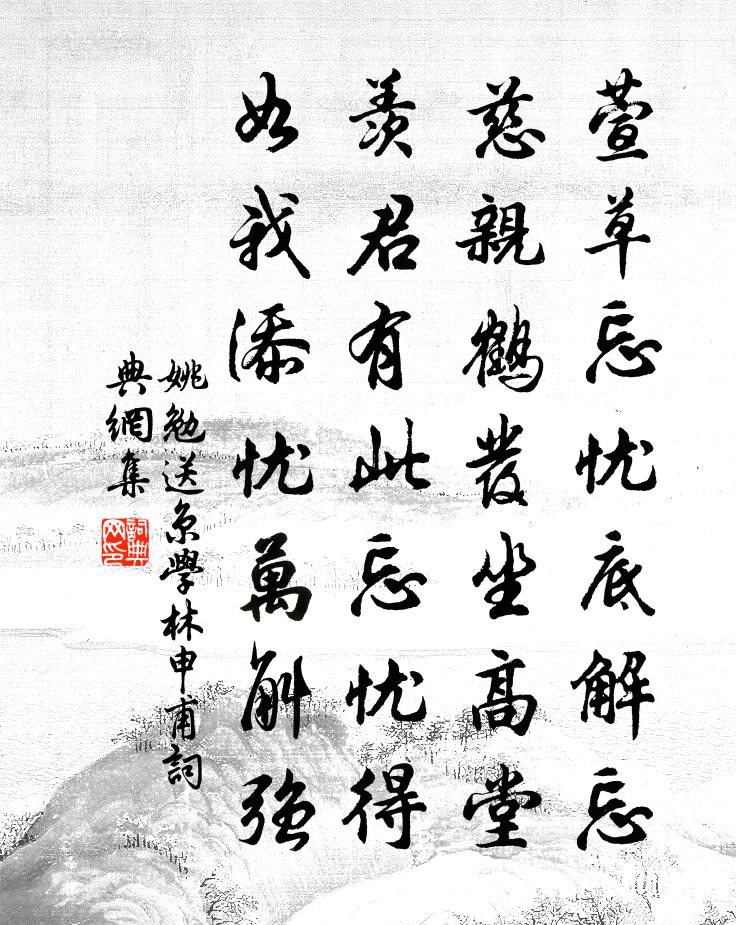 萱草忘忧底解忘
慈親鶴发坐高堂
羨君有此忘忧得
如我添忧萬斛强
姚勉送京學林申甫詞
典網集
詞典
网印